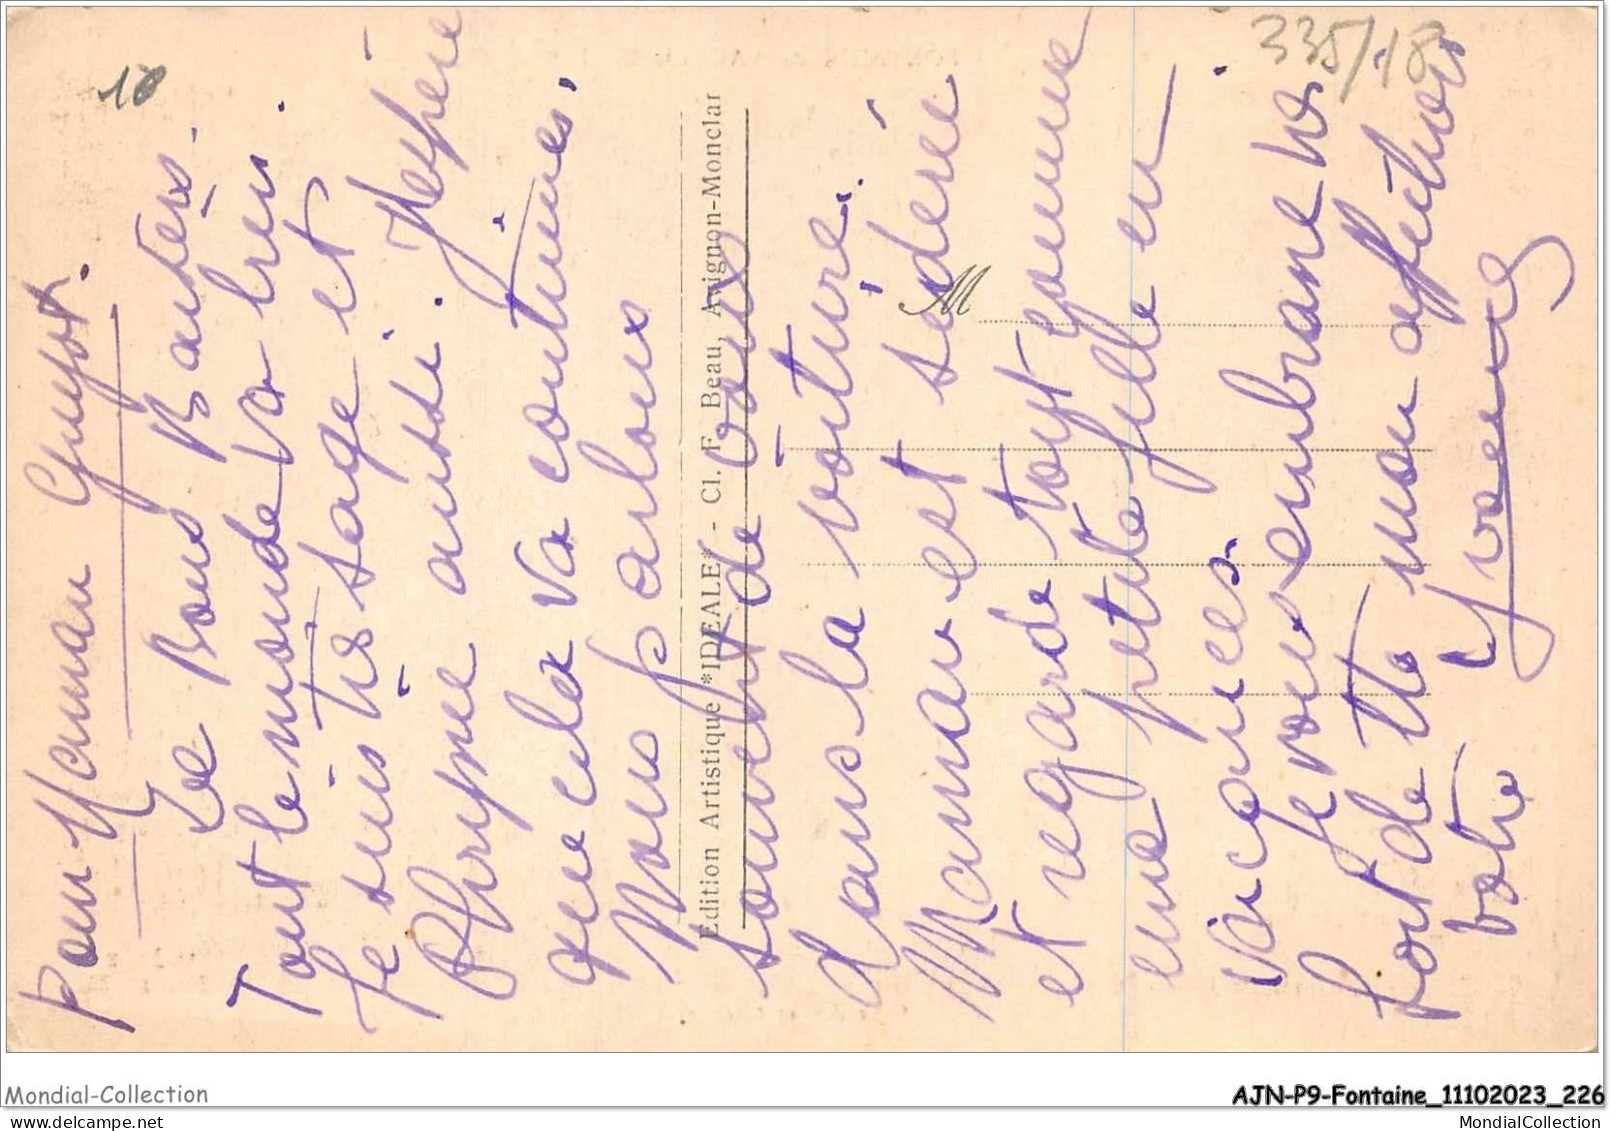 Pour Maman Guyot.
De Bons Baisers.
Tout le monde va bien.
Je suis très sage et
Afrijme aussi. J'espère
que cela va continuer.
Nous parlons
souvent de vous
dans la voiture.
Maman est sidérée
et regarde tout comme
une petite fille en
vacances.
Je vous embrasse très
fort de tte mon affection
votre Yvanes
Edition Artistique "IDEALE" - Cl. F. Beau, Avignon-Monclar
M
10
335/18
Mondial-Collection
AJN-P9-Fontaine_11102023_226
www.delcampe.net
MondialCollection